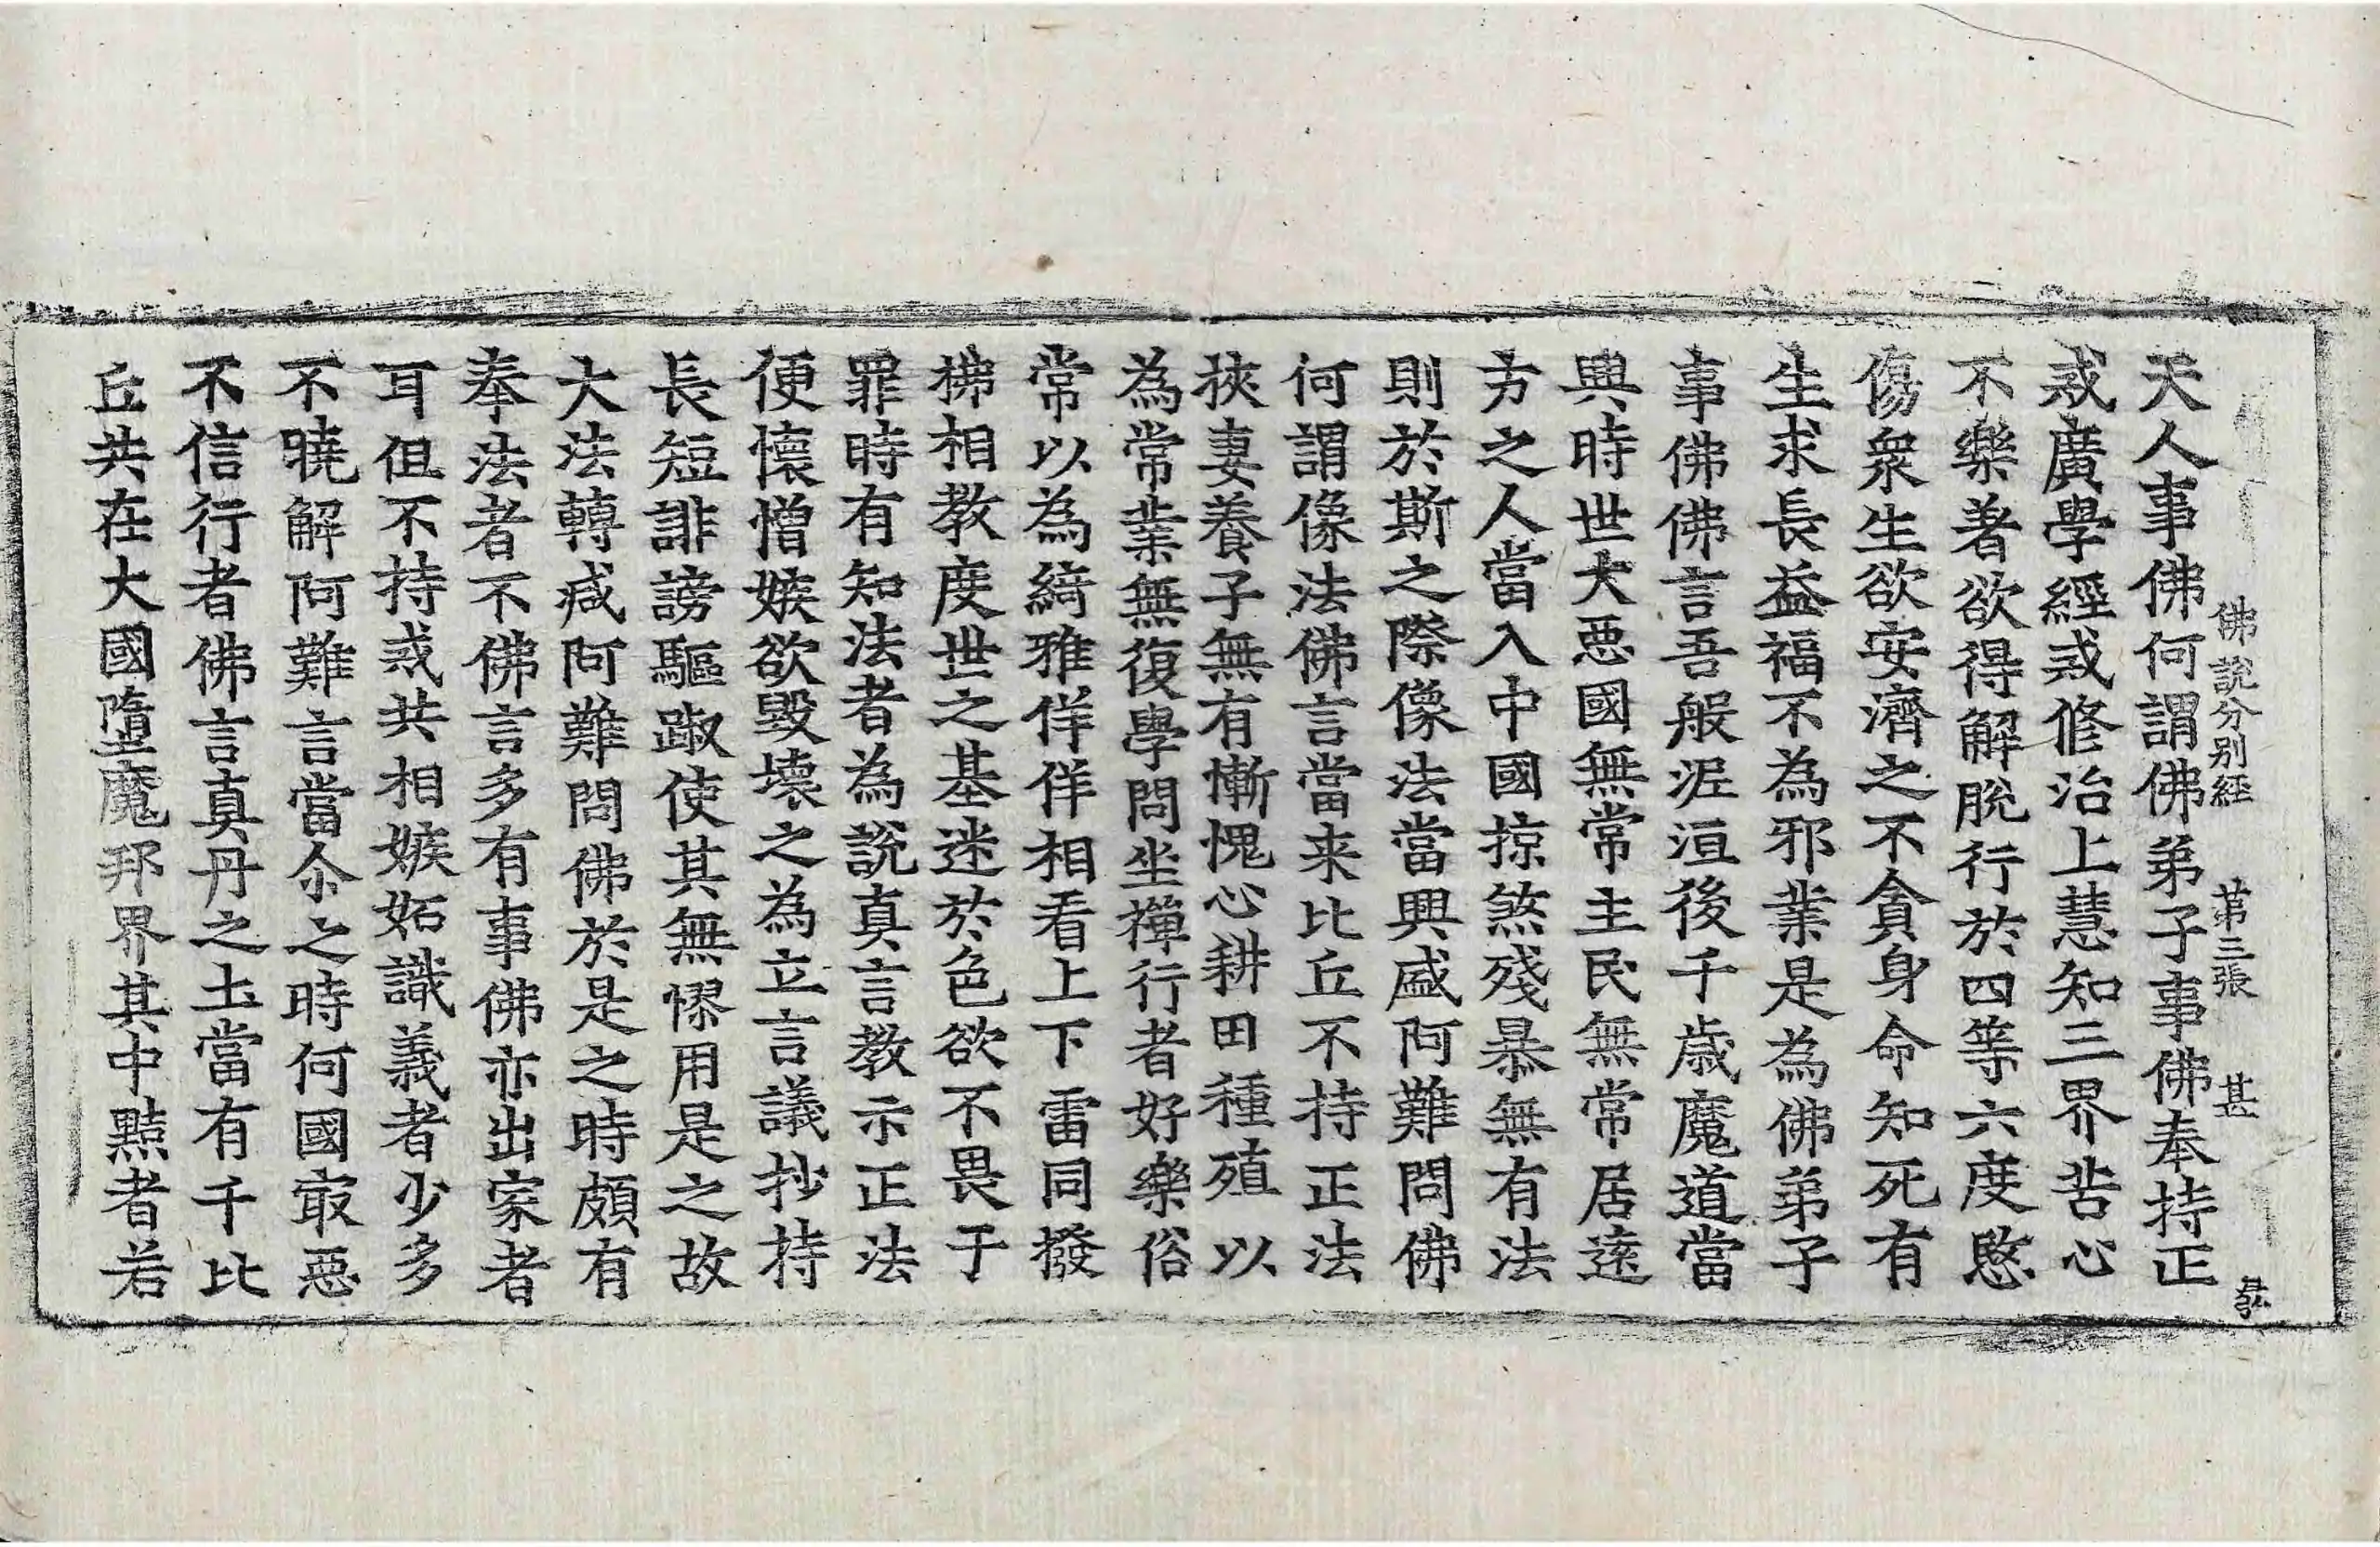 佛說分別經 第三張 甚
天人事佛何謂佛弟子事佛奉持正
戒廣學經戒修治上慧知三界苦心
不樂著欲得解脫行於四等六度愍
傷衆生欲安濟之不貪身命知死有
生求長益福不為邪業是為佛弟子
事佛佛言吾般泥洹後千歲魔道當
興時世大惡國無常主民無常居遠
方之人當入中國掠煞殘暴無有法
則於斯之際像法當興盛阿難問佛
何謂像法佛言當来比丘不持正法
挾妻養子無有慚愧心耕田種殖以
為常業無復學問坐禪行者好樂俗
常以為綺雅佯佯相看上下雷同撥
拂相教度世之基迷於色欲不畏于
罪時有知法者為說真言教示正法
便懷憎嫉欲毀壞之為立言議抄持
長短誹謗驅踧使其無憀用是之故
大法轉滅阿難問佛於是之時頗有
奉法者不佛言多有事佛亦出家者
耳但不持戒共相嫉妬識義者少多
不曉解阿難言當尒之時何國㝡惡
不信行者佛言真丹之土當有千比
丘共在大國墮魔邦界其中黠者若